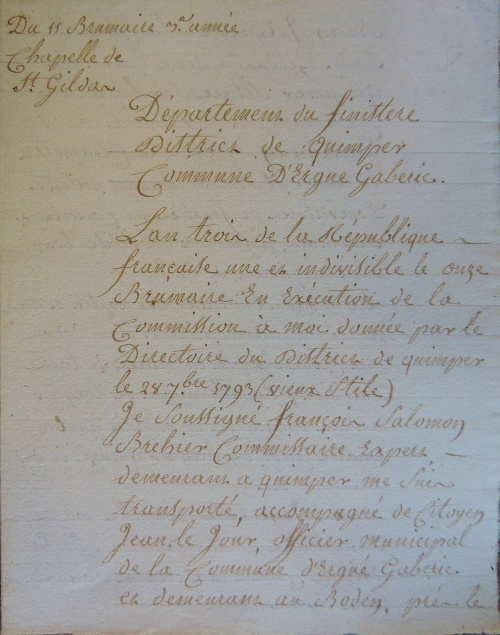 Du 11 Brumaire 3e. année
Chapelle de
St. Gildas
Département du finistere
District de quimper
Commune D'Ergue Gaberic.
L'an trois de la République
française une et indivisible le onze
Brumaire En Exécution de la
Commission à moi donnée par le
Directoire du District de quimper
le 28 7.bre 1793 (vieux Stile)
Je Soussigné françois Salomon
Brehier Commissaire Expert
demeurant a quimper me Suis
transporté, accompagné de Citoyen
Jean le Jour, officier municipal
de la Commune d'Ergué Gaberic
et demeurant au Boden, près le